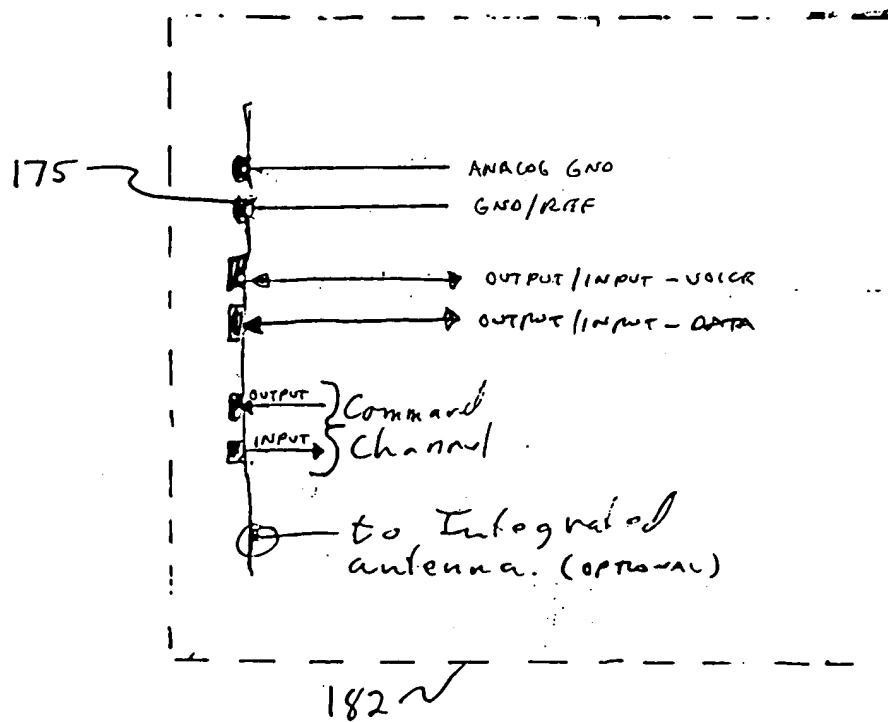 175
ANALOG GND
GND/REF
OUTPUT/INPUT-VOICE
OUTPUT/INPUT-DATA
OUTPUT
INPUT
Command
Channel
to Integrated
antenna. (OPTIONAL)
182